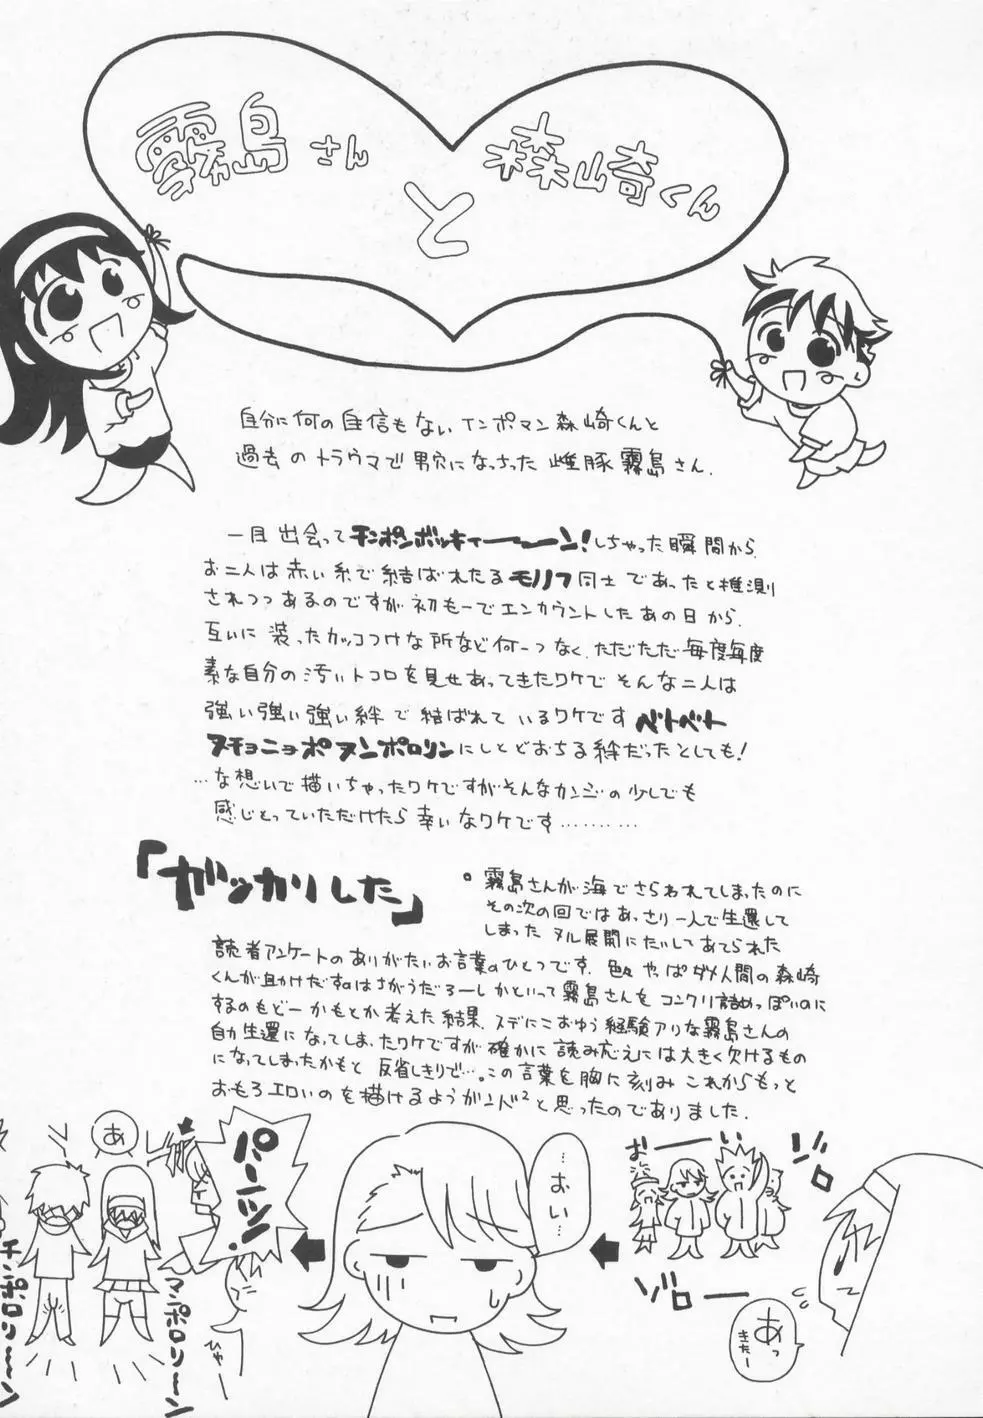 霧島さん
と
森崎くん
自分に何の自信もないインポマン森崎くんと
過去のトラウマで男穴になっちった雌豚霧島さん.
一目出会ってチンポンボッキィーーーン!しちゃった瞬間から.
お二人は赤い糸で結ばれたるモノノフ同士であったと推測
されつつあるのですが初もーでエンカウントしたあの日から.
互いに装ったカッコつけな所など何一つなく.ただただ毎度毎度
素な自分の汚いトコロを見せあってきたワケでそんな二人は
強い強い強い絆で結ばれているワケですベトベト
ヌチョニョポヌンポロリンにしとどおちる絆だったとしても!
…な想いで描いちゃったワケですがそんなカンジの少しでも
感じとっていただけたら幸いなワケです………
「ガッカリした」
。霧島さんが海でさらわれてしまったのに
その次の回ではあっさり一人で生還して
しまったヌル展開にたいしてあてられた
読者アンケートのありがたいお言葉のひとつです.色々やっぱダメ人間の森崎
くんが助けだすのはさがうだろーしかといって霧島さんをコンクリ詰めっぽいのに
するのもどーかもとか考えた結果.スデにこおゆう経験アリな霧島さんの
自力生還になってしまったワケですが確かに読み応えには大きく欠けるもの
になってしまったかもと反省しきりで…。この言葉を胸に刻みこれからもっと
おもろエロいのを描けるようがんばと思ったのでありました.
おーーい
ゾロ
ゾロー
あっ
きたー
…おい…
パーンッ!
ひゃー
あ
マンポロリーン
チンポロリーン